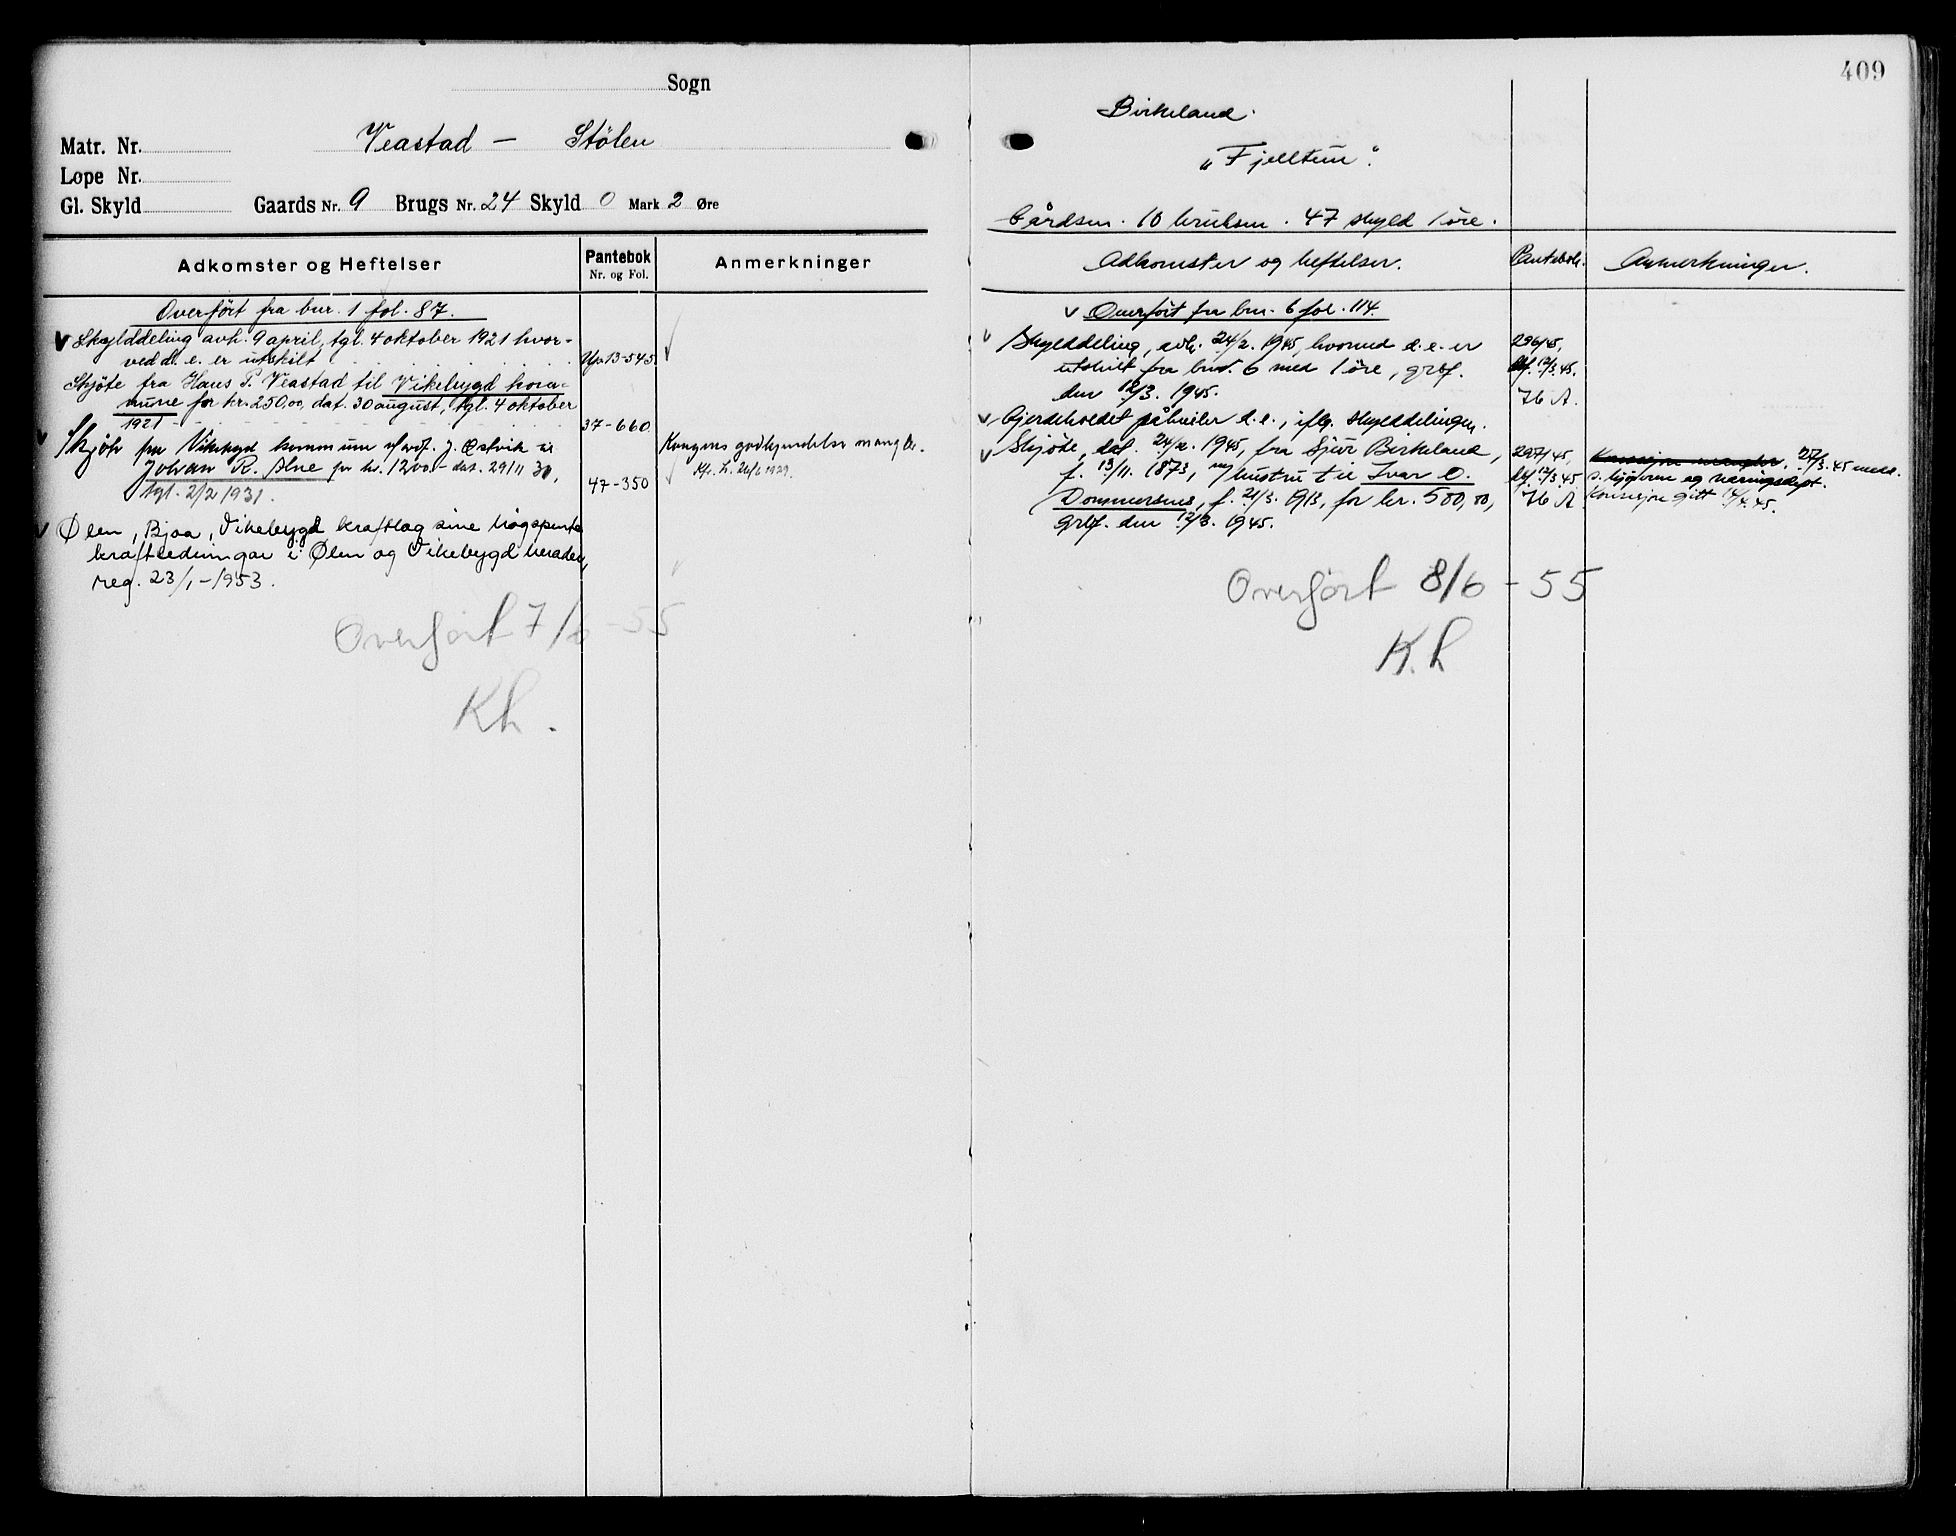 Sogn
Matr. Nr. Veastad - Stölen
Lope Nr.
Gl. Skyld Gaards Nr. 9 Brugs Nr. 24 Skyld 0 Mark 2 Øre
Adkomster og Heftelser Pantebok Nr. og Fol. Anmerkninger
Overfört fra bnr. 1 fol. 87.
Skylddeling avh. 9 april, tgl. 4 oktober 1921 hvor-
ved d. e. er utskilt 13-545
Skjöte fra Hans P. Veastad til Vikebygd kom-
mune for kr. 250,00, dat. 30 august, tgl. 4 oktober
1921 - 37-660
Skjöte fra Vikebygd kommune v/ordf. J. Østvik til Kongens godkjendelse mangler.
Johan R. Alne for kr. 1200.- dat. 29/11 30, 47-350 26/6 1929.
tgl. 2/2 1931.
Ølen, Bjoa, Vikebygd kraftlag sine högspente
kraftledningar i Ølen og Vikebygd herader,
reg. 23/1-1953.
Overfört 7/6-55
Kh.
409
Birkeland.
"Fjelltun".
Gårdsnr. 10 bruksnr. 47 skyld 1 öre.
Adkomster og heftelser. Pantebok. Anmerkninger.
Overfört fra bnr. 6 fol. 114.
Skylddeling, avh. 24/2. 1945, hvorved d.e. er 296/45,
utskilt fra bnr. 6 med 1 öre, grbf. 12/3 45.
den 12/3. 1945. H A.
Gjerdeholdet påhviler d.e., iflg. skylddelingen.
Skjöte, dat. 24/2. 1945, fra Sjur Birkeland, 297/45, Konsesjon mangler. 27/3. 45 medd.
f. 13/11. 1873, m/hustru til Ivar O. 12/3 45 næringsdept.
Dommersnes, f. 21/3. 1913, for kr. 500,00, H A Konsesjon gitt 14/4. 45.
grbf. den 12/3. 1945.
Overfört 8/6-55
K.h